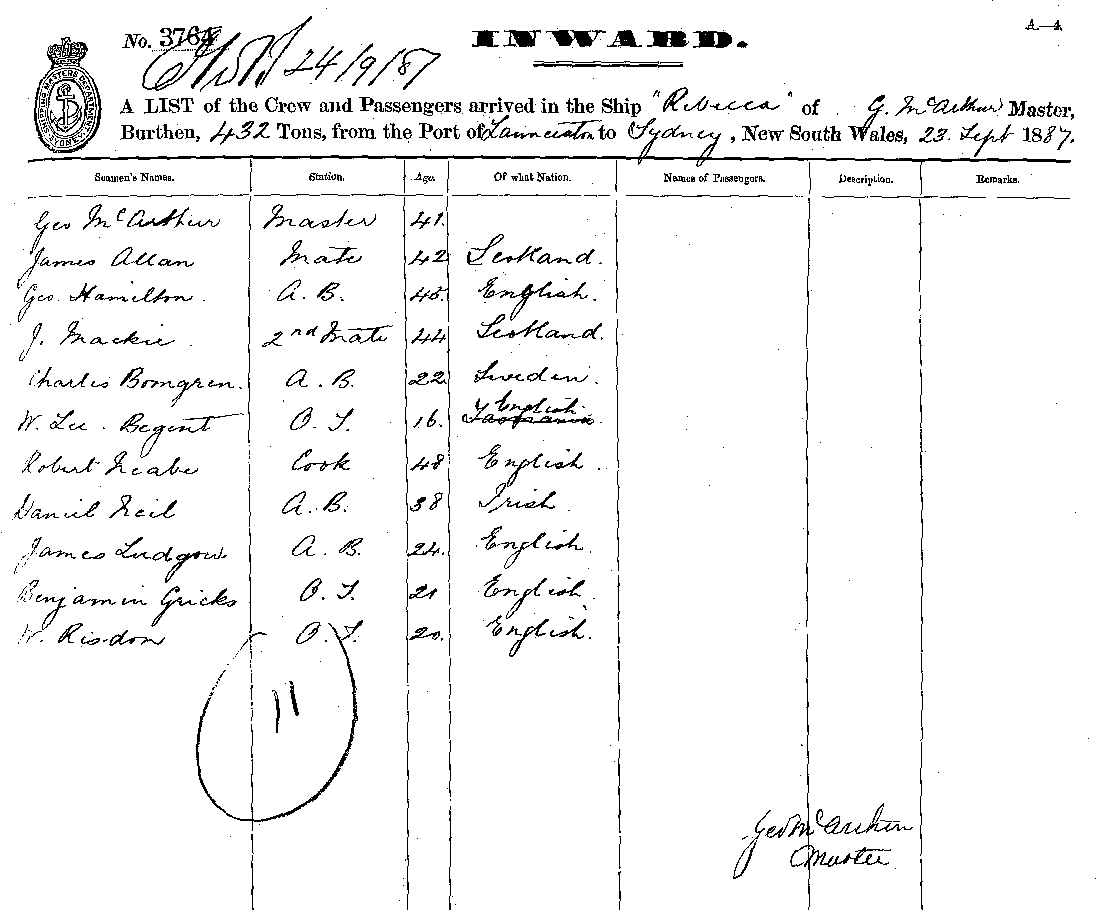 A—4.
No. 3764 INWARD.
24/9/87
A LIST of the Crew and Passengers arrived in the Ship "Rebecca" of G. McArthur Master,
Burthen, 432 Tons, from the Port of Launceston to Sydney, New South Wales, 23 Sept 1887.
Seamen's Names. Station. Age. Of what Nation. Names of Passengers. Description. Remarks.
Geo McArthur Master 41.
James Allan Mate 42 Scotland.
Geo. Hamilton. A. B. 45. English.
J. Mackie. 2nd Mate 44 Scotland.
Charles Bomgren. A. B. 22. Sweden.
W. Lee. Begent O. S. 16. English. Tasmania.
Robert Neabe Cook 48 English.
Daniel Neil A. B. 38 Irish.
James Ludgow A. B. 24. English.
Benjamin Gricks O. S. 21 English.
W. Risdon O. S. 20. English.
11
Geo McArthur
Master